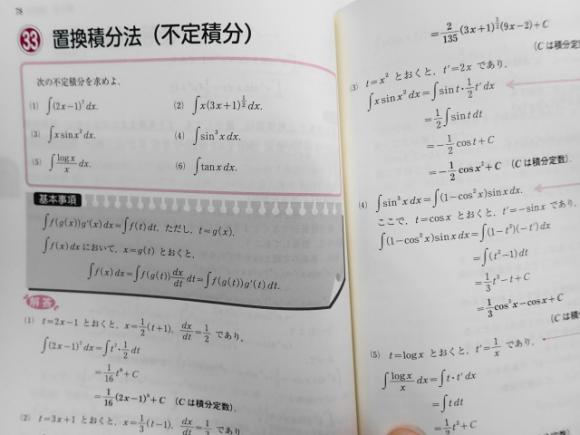 78
33 置換積分法（不定積分）
次の不定積分を求めよ.
(1) ∫(2x−1)⁷dx. (2) ∫x(3x+1)^{1/2}dx.
(3) ∫x sin x² dx. (4) ∫sin³x dx.
(5) ∫(log x / x) dx. (6) ∫tan x dx.
基本事項
∫f(g(x))g'(x)dx=∫f(t)dt, ただし, t=g(x).
∫f(x)dx において, x=g(t) とおくと,
∫f(x)dx=∫f(g(t)) dx/dt dt=∫f(g(t))g'(t)dt.
解答
(1) t=2x−1 とおくと, x=1/2(t+1), dx/dt=1/2 であり,
∫(2x−1)⁷dx=∫t⁷·1/2 dt
=1/16 t⁸+C
=1/16(2x−1)⁸+C (C は積分定数).
(2) t=3x+1 とおくと, x=1/3(t−1),
=2/135(3x+1)^{3/2}(9x−2)+C
(C は積分定数
(3) t=x² とおくと, t'=2x であり,
∫x sin x² dx=∫sin t·1/2 t' dx
=1/2∫sin t dt
=−1/2 cos t+C
=−1/2 cos x²+C (C は積分定数).
(4) ∫sin³x dx=∫(1−cos²x)sin x dx.
ここで, t=cos x とおくと, t'=−sin x であり,
∫(1−cos²x)sin x dx=∫(1−t²)(−t')dx
=∫(t²−1)dt
=1/3 t³−t+C
=1/3 cos³x−cos x+C
(C は積
(5) t=log x とおくと, t'=1/x であり,
∫(log x / x) dx=∫t·t' dx
=∫t dt
=1/2 t²+C